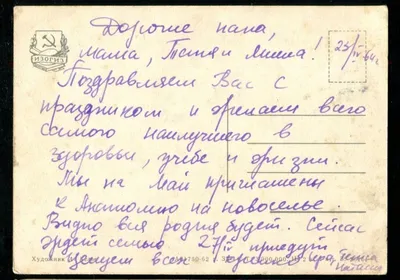 Дорогие папа,
мама, Тётя и Миша!
ИЗОГИЗ
Поздравляем Вас с
праздником и желаем всего
самого наилучшего в
здоровьи, учёбе и жизни.
Мы на Май приглашены
к Анатолию на новоселье.
Видно вся родня будет. Сейчас
ждёт семью 27/IV приедут
Целуем всех
Наташа
Художник